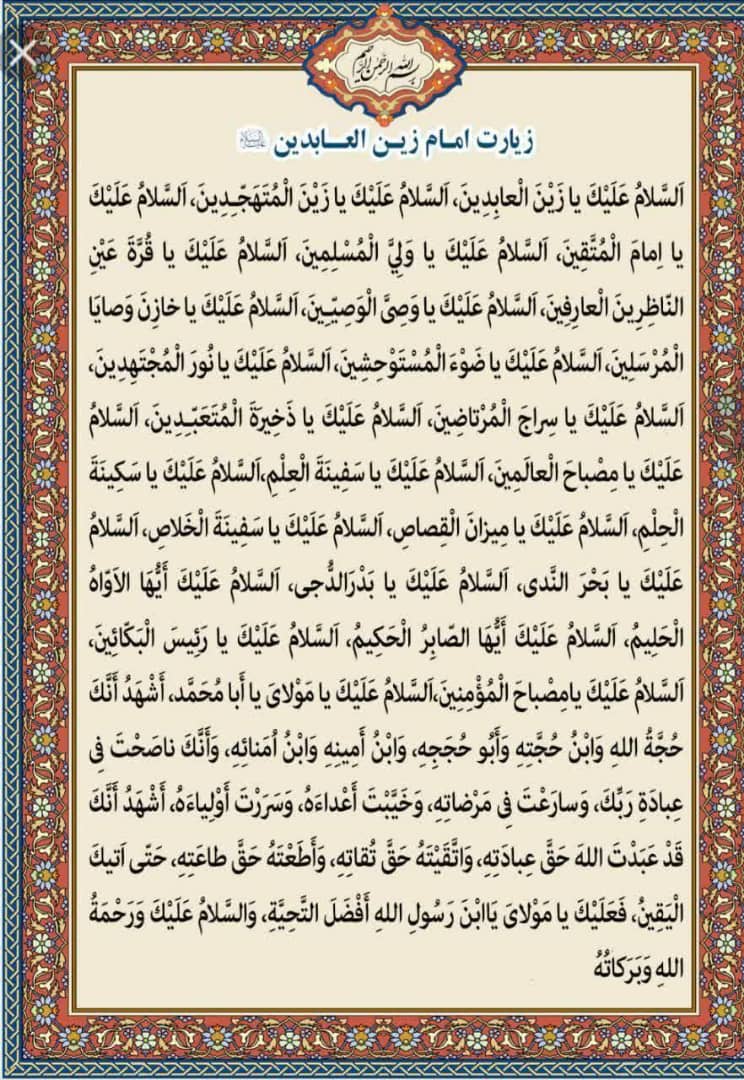 بسم الله الرحمن الرحیم
زیارت امام زین العابدین علیه‌السلام
اَلسَّلامُ عَلَيْكَ يا زَيْنَ الْعابِدِينَ، اَلسَّلامُ عَلَيْكَ يا زَيْنَ الْمُتَهَجِّدِينَ، اَلسَّلامُ عَلَيْكَ
يا اِمامَ الْمُتَّقِينَ، اَلسَّلامُ عَلَيْكَ يا وَلِيَّ الْمُسْلِمِينَ، اَلسَّلامُ عَلَيْكَ يا قُرَّةَ عَيْنِ
النّاظِرِينَ الْعارِفِينَ، اَلسَّلامُ عَلَيْكَ يا وَصِىَّ الْوَصِيِّينَ، اَلسَّلامُ عَلَيْكَ يا خازِنَ وَصايَا
الْمُرْسَلِينَ، اَلسَّلامُ عَلَيْكَ يا ضَوْءَ الْمُسْتَوْحِشِينَ، اَلسَّلامُ عَلَيْكَ يا نُورَ الْمُجْتَهِدِينَ،
اَلسَّلامُ عَلَيْكَ يا سِراجَ الْمُرْتاضِينَ، اَلسَّلامُ عَلَيْكَ يا ذَخِيرَةَ الْمُتَعَبِّدِينَ، اَلسَّلامُ
عَلَيْكَ يا مِصْباحَ الْعالَمِينَ، اَلسَّلامُ عَلَيْكَ يا سَفِينَةَ الْعِلْمِ،اَلسَّلامُ عَلَيْكَ يا سَكِينَةَ
الْحِلْمِ، اَلسَّلامُ عَلَيْكَ يا مِيزانَ الْقِصاصِ، اَلسَّلامُ عَلَيْكَ يا سَفِينَةَ الْخَلاصِ، اَلسَّلامُ
عَلَيْكَ يا بَحْرَ النَّدى، اَلسَّلامُ عَلَيْكَ يا بَدْرَالدُّجى، اَلسَّلامُ عَلَيْكَ أَيُّهَا الاَوّاهُ
الْحَلِيمُ، اَلسَّلامُ عَلَيْكَ أَيُّهَا الصّابِرُ الْحَكِيمُ، اَلسَّلامُ عَلَيْكَ يا رَئِيسَ الْبَكّائِينَ،
اَلسَّلامُ عَلَيْكَ يامِصْباحَ الْمُؤْمِنِينَ،اَلسَّلامُ عَلَيْكَ يا مَوْلاىَ يا أَبا مُحَمَّد، أَشْهَدُ أَنَّكَ
حُجَّةُ اللهِ وَابْنُ حُجَّتِهِ وَأَبُو حُجَجِهِ، وَابْنُ أَمِينِهِ وَابْنُ اُمَنائِهِ، وَأَنَّكَ ناصَحْتَ فِى
عِبادَةِ رَبِّكَ، وَسارَعْتَ فِى مَرْضاتِهِ، وَخَيَّبْتَ أَعْداءَهُ، وَسَرَرْتَ أَوْلِياءَهُ، أَشْهَدُ أَنَّكَ
قَدْ عَبَدْتَ اللهَ حَقَّ عِبادَتِهِ، وَاتَّقَيْتَهُ حَقَّ تُقاتِهِ، وَأَطَعْتَهُ حَقَّ طاعَتِهِ، حَتّى اَتيكَ
الْيَقِينُ، فَعَلَيْكَ يا مَوْلاىَ يَاابْنَ رَسُولِ اللهِ أَفْضَلَ التَّحِيَّةِ، وَالسَّلامُ عَلَيْكَ وَرَحْمَةُ
اللهِ وَبَرَكاتُهُ